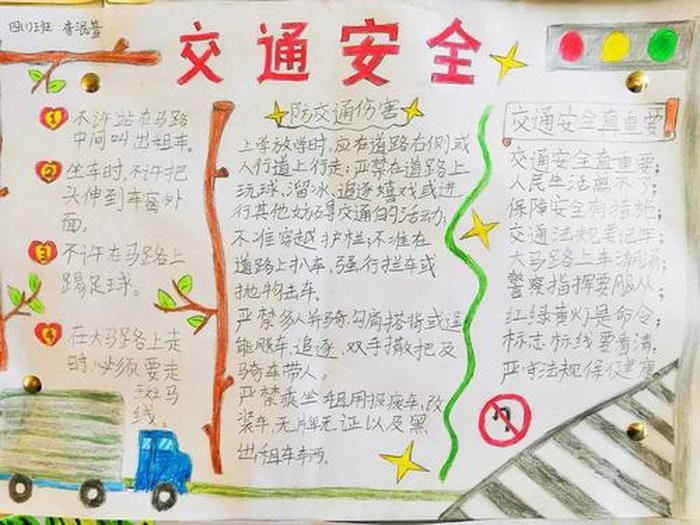 四(1)班
交通安全
1 不许站在马路
中间叫出租车。
2 坐车时,不许把
头伸到车窗外
面。
3 不许在马路上
踢足球。
4 在大马路上走
时,必须要走
斑马
线。
防交通伤害
上学放学时,应在道路右侧或
人行道上行走;严禁在道路上
玩球、溜冰、追逐嬉戏或进
行其他妨碍交通的活动;
不准穿越护栏;不准在
道路上扒车、强行拦车或
抛物击车。
严禁多人并骑,勾肩搭背或逞
能飚车、追逐、双手撒把及
骑车带人。
严禁乘坐租用报废车、改
装车、无牌无证以及黑
出租车车辆。
交通安全真重要
交通安全真重要;
人民生活离不了;
保障安全有措施;
交通法规要记牢;
大马路上车滚滚;
警察指挥要服从;
红绿黄灯是命令;
标志标线要看清;
严守法规保健康